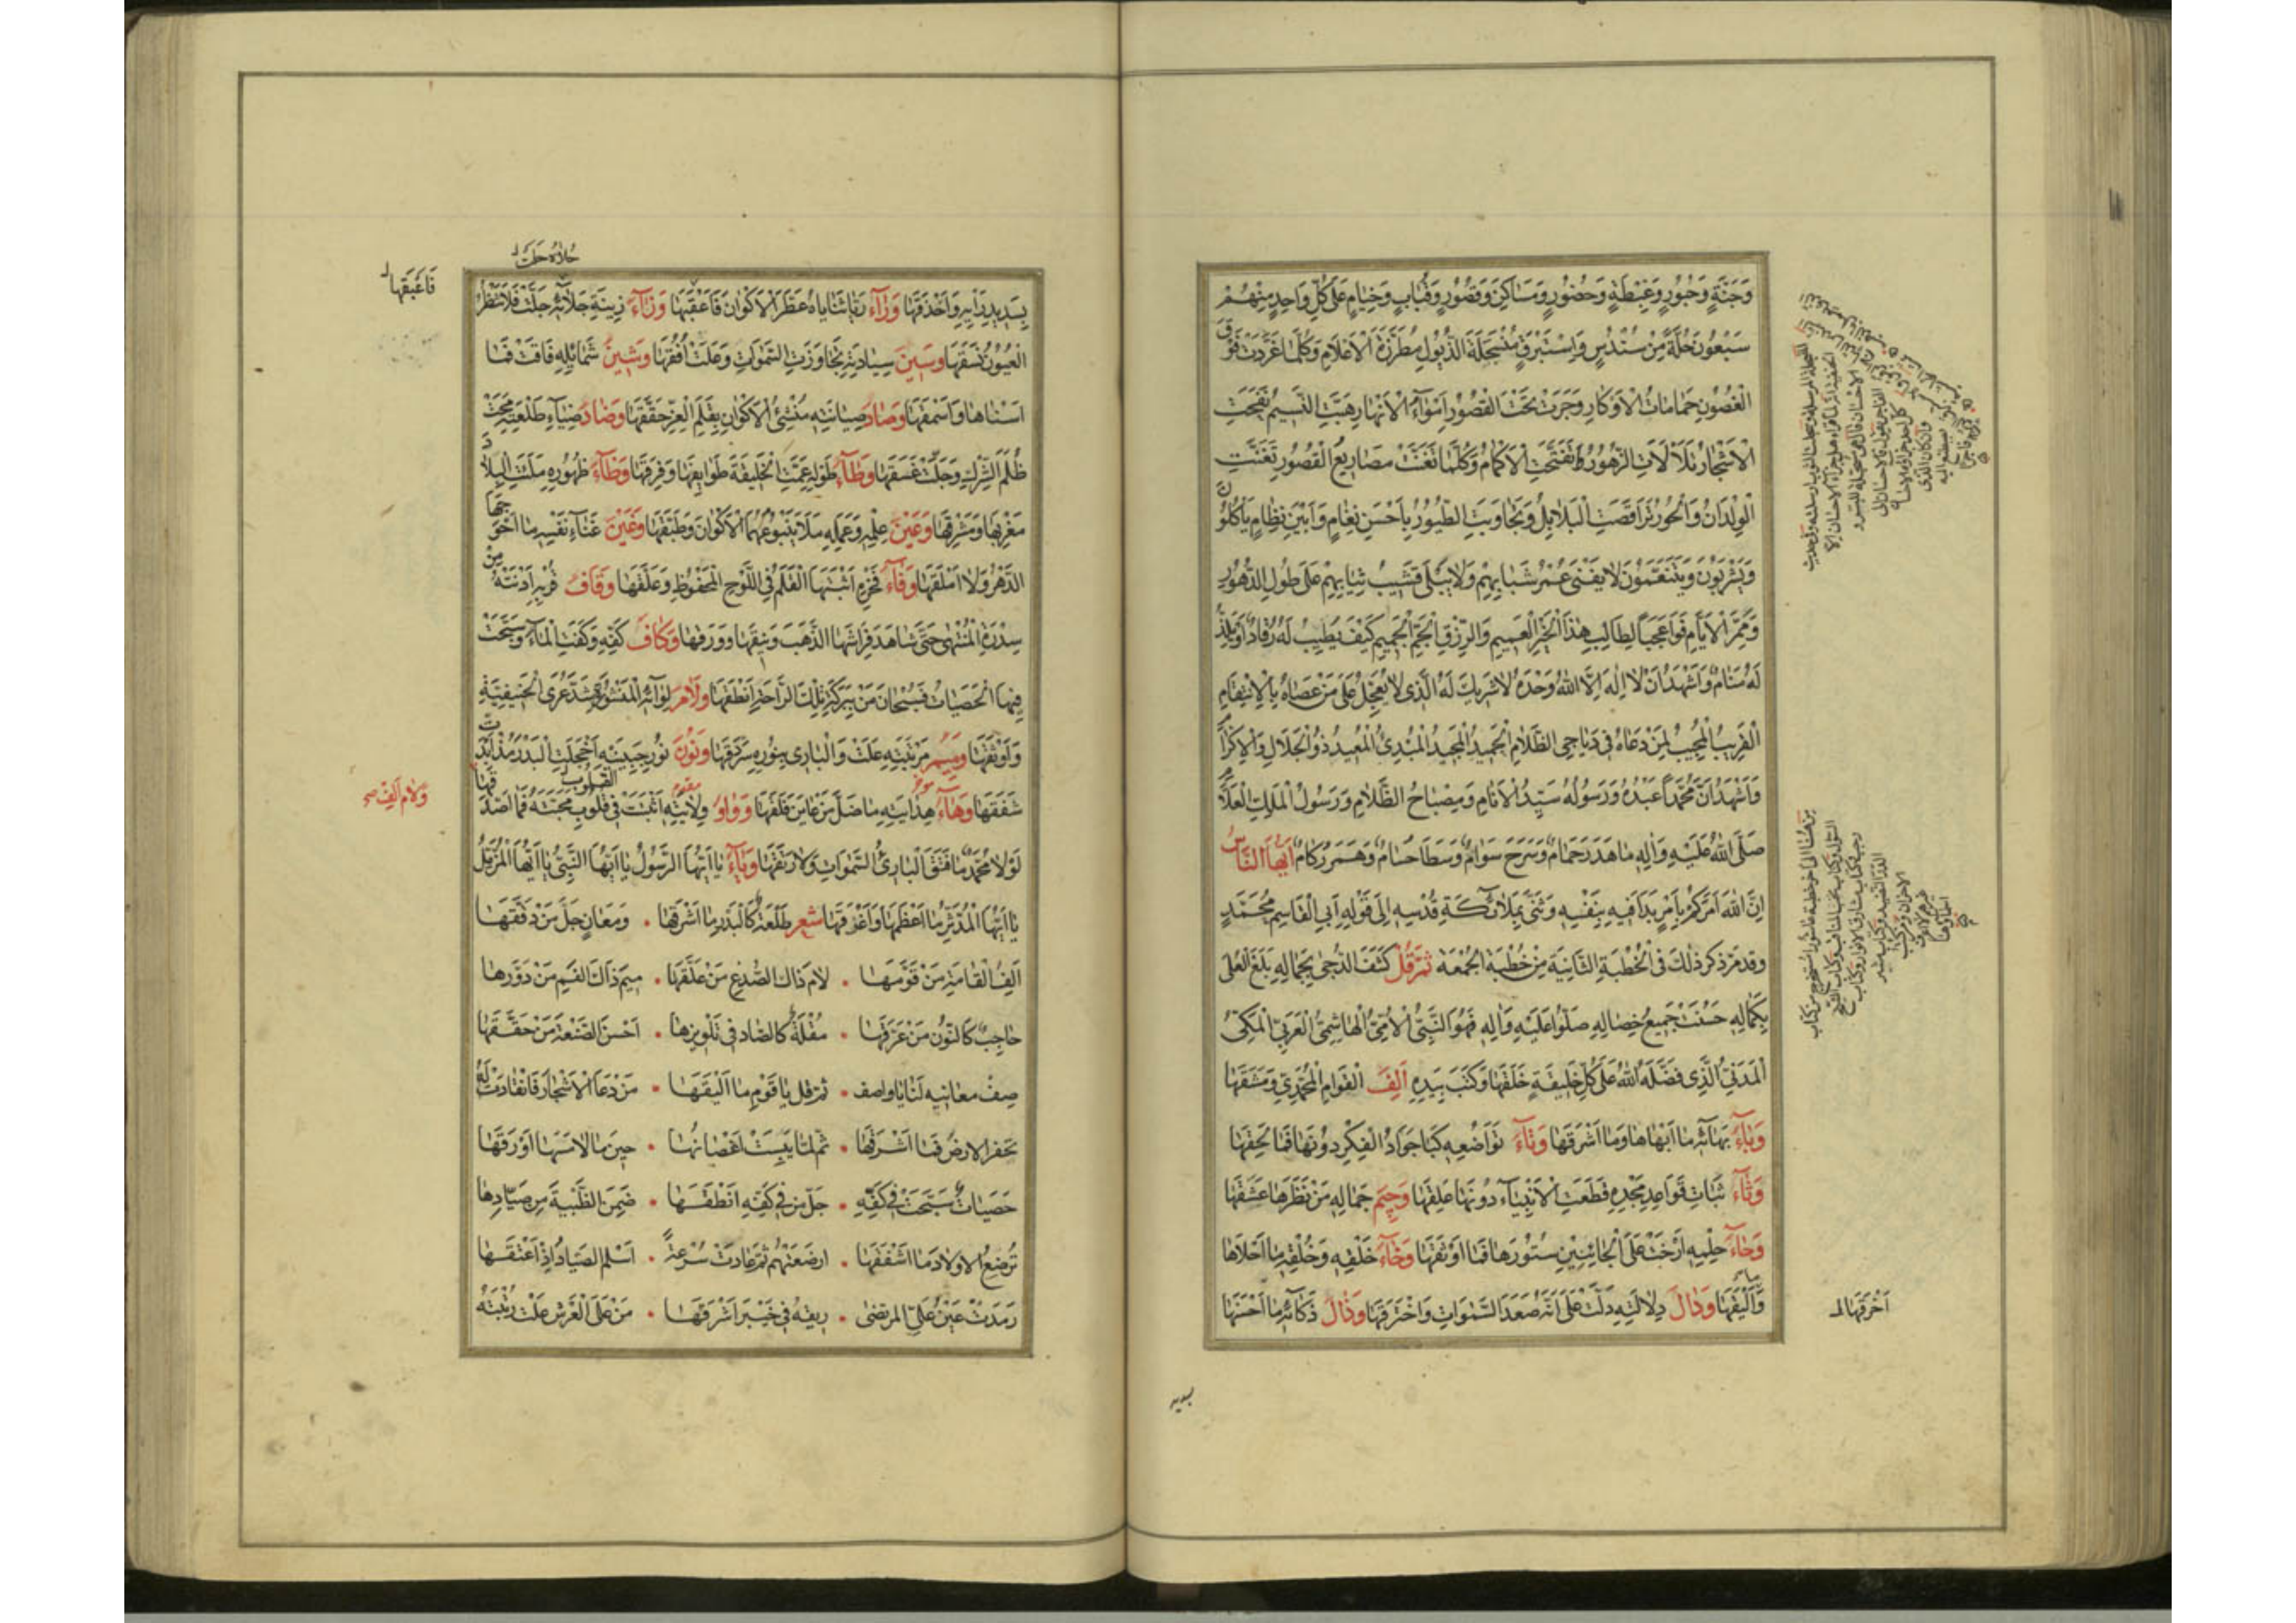 وَجَنَّةٍ وَحُبُورٍ وَغِبْطَةٍ وَحُضُورٍ وَمَسَاكِنَ وَقُصُورٍ وَقُبَابٍ وَخِيَامٍ عَلَى كُلِّ وَاحِدٍ مِنْهُمْ
سَبْعُونَ حُلَّةً مِنْ سُنْدُسٍ وَاِسْتَبْرَقٍ مُسْجَلَةَ الذُّيُولِ مُطَرَّزَةَ الْاَعْلَامِ وَكُلَّمَا غَرَّدَتْ فَوْقَ
الْغُصُونِ حَمَامَاتُ الْاَوْكَارِ وَجَرَتْ تَحْتَ الْقُصُورِ اَمْوَاءُ الْاَنْهَارِ هَبَّتِ النَّسِيمُ نَفَجَتِ
الْاَشْجَارُ تَلَأْلَأَتِ الزُّهُورُ وَتَفَتَّحَتِ الْاَكْمَامُ وَكُلَّمَا تَغَنَّتْ مَصَارِيعُ الْقُصُورِ تَغَنَّتِ
الْوِلْدَانُ وَالْحُورُ تَرَاقَصَتِ الْبَلَابِلُ وَتَجَاوَبَتِ الطُّيُورُ بِاَحْسَنِ نِغَامٍ وَاَبْيَنِ نِظَامٍ يَأْكُلُونَ
وَيَشْرَبُونَ وَيَتَنَعَّمُونَ لَا يَفْنَى عُمْرُ شَبَابِهِمْ وَلَا يَبْلَى قَشِيبُ ثِيَابِهِمْ عَلَى طُولِ الدُّهُورِ
وَمَمَرِّ الْاَيَّامِ فَوَاعَجَبًا لِطَالِبِ هٰذَا الْخَيْرِ الْعَمِيمِ وَالرِّزْقِ الْجَمِّ الْجَمِيمِ كَيْفَ يَطِيبُ لَهُ رُقَادٌ اَوْ يَلَذُّ
لَهُ مَنَامٌ وَاَشْهَدُ اَنْ لَا اِلٰهَ اِلَّا اللهُ وَحْدَهُ لَا شَرِيكَ لَهُ الَّذِى لَا يُعَجِّلُ عَلَى مَنْ عَصَاهُ بِالْاِنْتِقَامِ
الْقَرِيبُ الْمُجِيبُ لِمَنْ دَعَاهُ فِى دَيَاجِى الظَّلَامِ الْحَمِيدُ الْمَجِيدُ الْمُبْدِئُ الْمُعِيدُ ذُو الْجَلَالِ وَالْاِكْرَامِ
وَاَشْهَدُ اَنَّ مُحَمَّدًا عَبْدُهُ وَرَسُولُهُ سَيِّدُ الْاَنَامِ وَمِصْبَاحُ الظَّلَامِ وَرَسُولُ الْمَلِكِ الْعَلَّامِ
صَلَّى اللهُ عَلَيْهِ وَاٰلِهِ مَا هَدَرَ حَمَامٌ وَسَرَحَ سَوَامٌ وَسَطَا حُسَامٌ وَهَمَرَ رُكَامٌ اَيُّهَا النَّاسُ
اِنَّ اللهَ اَمَرَكُمْ بِاَمْرٍ بَدَاَ فِيهِ بِنَفْسِهِ وَثَنَّى بِمَلَائِكَةِ قُدْسِهِ اِلَى قَوْلِهِ اَبِى الْقَاسِمِ مُحَمَّدٍ
وَقَدْ مَرَّ ذِكْرُ ذٰلِكَ فِى الْخُطْبَةِ الثَّانِيَةِ مِنْ خُطْبَةِ الْجُمُعَةِ ثُمَّ قُلْ كَشَفَ الدُّجَى بِجَمَالِهِ بَلَغَ الْعُلَى
بِكَمَالِهِ حَسُنَتْ جَمِيعُ خِصَالِهِ صَلُّوا عَلَيْهِ وَاٰلِهِ فَهُوَ النَّبِىُّ الْاُمِّىُّ الْهَاشِمِىُّ الْعَرَبِىُّ الْمَكِّىُّ
الْمَدَنِىُّ الَّذِى فَضَّلَهُ اللهُ عَلَى كُلِّ خَلِيقَةٍ خَلَقَهَا وَكَتَبَ بِيَدِهِ اَلِفَ الْقَوَامِ الْمُحَمَّدِىِّ وَمَشَقَهَا
وَبَاءَ بَهَائِهِ مَا اَبْهَاهَا وَمَا اَشْرَقَهَا وَتَاءَ تَوَاضُعِهِ كَبَا جَوَادُ الْفِكْرِ دُونَهَا فَمَا لَحِقَهَا
وَثَاءَ ثَبَاتِ قَوَاعِدِ مَجْدِهِ قَطَعَتِ الْاَنْبِيَاءَ دُونَهَا عَلِقَهَا وَجِيمَ جَمَالِهِ مَنْ نَظَرَهَا عَشَقَهَا
وَحَاءَ حِلْمِهِ اَرْخَتْ عَلَى الْجَانِبَيْنِ سُتُورَهَا فَمَا اَوْثَقَهَا وَخَاءَ خَلْقِهِ وَخُلُقِهِ مَا اَحْلَاهَا
وَاَلْيَقَهَا وَدَالَ دِلَالَتِهِ دَلَّتْ عَلَى اَنَّهُ صَعَدَ السَّمٰوَاتِ وَاخْتَرَقَهَا وَذَالَ ذَكَائِهِ مَا اَحْسَنَهَا
اَخْرَقَهَا
حُلَاهُ جَلَّتْ
فَاَعْبَقَهَا
بِسَدِيدِ رَأْيِهِ وَاَحْذَقَهَا وَرَاءَ رَيَّا ثَنَايَاهُ عَطَّرَ الْاَكْوَانَ فَاَعْقَبَهَا وَزَاءَ زِينَةِ جَلَائِهِ جَلَّتْ فَلَا تَنْظُرُ
الْعُيُونُ نَسَقَهَا وَسِينَ سِيَادَتِهِ تَجَاوَزَتِ السَّمٰوَاتِ وَعَلَتْ اُفُقَهَا وَشِينَ شَمَائِلِهِ فَاقَتْ فَمَا
اَسْنَاهَا وَاَسْمَقَهَا وَصَادَ صِيَانَتِهِ مُنْشِئُ الْاَكْوَانِ بِقَلَمِ الْعِزِّ حَقَّقَهَا وَضَادَ ضِيَاءِ طَلْعَتِهِ مَحَتْ
ظُلَمَ الشِّرْكِ وَجَلَّتْ غَسَقَهَا وَطَاءَ طَوْلِهِ عَمَّتِ الْخَلِيقَةَ طَوَايِفَهَا وَفِرَقَهَا وَظَاءَ ظُهُورِهِ مَلَكَتِ الْبِلَادَ
مَغْرِبَهَا وَمَشْرِقَهَا وَعَيْنَ عِلْمِهِ وَعَمَلِهِ مَلَأَ يَنْبُوعُهُمَا الْاَكْوَانَ وَطَبَّقَهَا وَغَيْنَ غَنَاءِ نَفْسِهِ مَا اَحْوَجَهَا
الدَّهْرُ وَلَا اَمْلَقَهَا وَفَاءَ فَخْرِهِ اَثْبَتَهَا الْقَلَمُ فِى اللَّوْحِ الْمَحْفُوظِ وَعَلَّقَهَا وَقَافَ قُرْبِهِ اَدْنَتْهُ مِنْ
سِدْرَةِ الْمُنْتَهَى حَتَّى شَاهَدَ فِرَاشَهَا الذَّهَبَ وَنَبِقَهَا وَوَرَقَهَا وَكَافَ كَفِّهِ وَكَفَتِ الْمَاءَ وَسَبَّحَتْ
فِيهَا الْحَصَيَاتُ فَسُبْحَانَ مَنْ بِبَرَكَةِ تِلْكَ الرَّاحَةِ اَنْطَقَهَا وَلَامَ لِوَائِهِ الْمَنْشُورِ شَدَّ عُرَى الْحَنِيفِيَّةِ
وَاَوْثَقَهَا وَمِيمَ مَرْتَبَتِهِ عَلَتْ وَالْبَارِى بِنُورِهِ سَرْدَقَهَا وَنُونَ نُورِ جَبِينِهِ اَخْجَلَتِ الْبَدْرَ مُذْ اَبْدَتْ
شَفَقَهَا وَهَاءَ هِدَايَتِهِ مَا ضَلَّ مَنْ عَايَنَ فَلَقَهَا وَوَاوَ وِلَايَتِهِ اَثْبَتَتْ فِى قُلُوبِ مَحَبَّتَهُ فَمَا اَصْدَقَهَا
وَلَامَ اَلِفِ صح
لَوْلَا مُحَمَّدٌ مَا فَتَقَ الْبَارِئُ السَّمٰوَاتِ وَلَا رَتَقَهَا وَيَاءَ يَا اَيُّهَا الرَّسُولُ يَا اَيُّهَا النَّبِىُّ يَا اَيُّهَا الْمُزَّمِّلُ
يَا اَيُّهَا الْمُدَّثِّرُ مَا اَعْظَمَهَا وَاَعْرَقَهَا شعر طَلْعَةٌ كَالْبَدْرِ مَا اَشْرَقَهَا • وَمَعَانٍ جَلَّ مَنْ دَقَّقَهَا
اَلِفُ الْقَامَةِ مَنْ قَوَّمَهَا • لَامُ ذَاكَ الصُّدْغِ مَنْ عَلَّقَهَا • مِيمُ ذَاكَ الْفَمِ مَنْ دَوَّرَهَا
حَاجِبٌ كَالنُّونِ مَنْ عَرَّقَهَا • مُقْلَةٌ كَالصَّادِ فِى تَلْوِيزِهَا • اَحْسَنَ الصَّنْعَةَ مَنْ حَقَّقَهَا
صِفْ مَعَانِيهِ لَنَا يَا وَاصِفُ • ثُمَّ قُلْ يَا قَوْمِ مَا اَلْيَقَهَا • مَنْ دَعَا الْاَشْجَارَ فَانْقَادَتْ لَهُ
تَحْفِرُ الْاَرْضَ فَمَا اَشْرَقَهَا • ثُمَّ لَمَّا يَبِسَتْ اَغْصَانُهَا • حِينَ مَا لَامَسَهَا اَوْرَقَهَا
حَصَيَاتٌ سَبَّحَتْ فِى كَفِّهِ • جَلَّ مَنْ فِى كَفِّهِ اَنْطَقَهَا • ضَمِنَ الظَّبْيَةَ مِنْ صَيَّادِهَا
تُرْضِعُ الْاَوْلَادَ مَا اَشْفَقَهَا • اَرْضَعَتْهُمْ ثُمَّ عَادَتْ سُرْعَةً • اَسْلَمَ الصَّيَّادُ اِذْ اَعْتَقَهَا
رَمَدَتْ عَيْنُ عَلِىِّ الْمُرْتَضَى • رِيقُهُ فِى خَيْبَرَ اَشْرَقَهَا • مَنْ عَلَى الْعَرْشِ عَلَتْ رُتْبَتُهُ